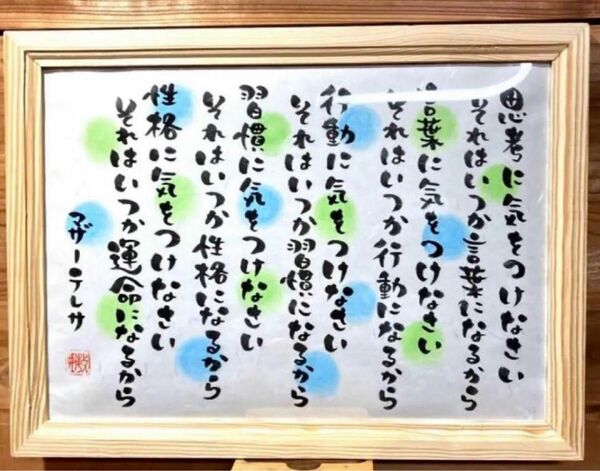 思考に気をつけなさい
それはいつか言葉になるから
言葉に気をつけなさい
それはいつか行動になるから
行動に気をつけなさい
それはいつか習慣になるから
習慣に気をつけなさい
それはいつか性格になるから
性格に気をつけなさい
それはいつか運命になるから
マザーテレサ